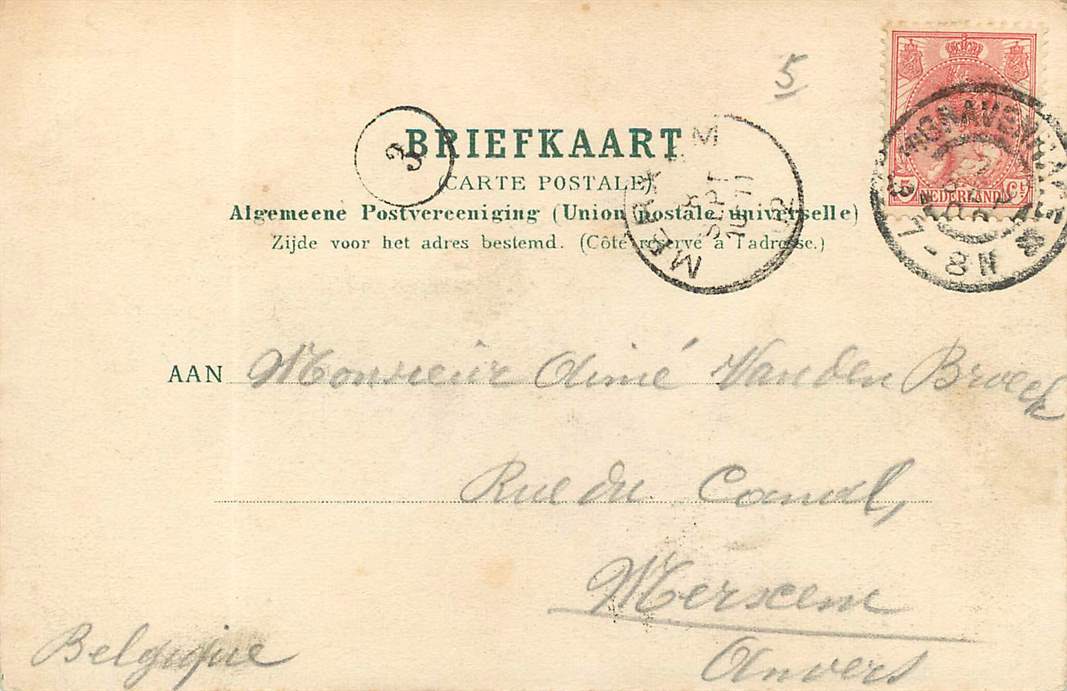 5
BRIEFKAART
3
(CARTE POSTALE)
Algemeene Postvereeniging (Union postale universelle)
Zijde voor het adres bestemd. (Côté réservé à l'adresse.)
5 Ct
NEDERLAND
7-8N
SEPT
AAN Monsieur Aimé Van den Broeck
Rue du Canal,
Merxem
Anvers
Belgique